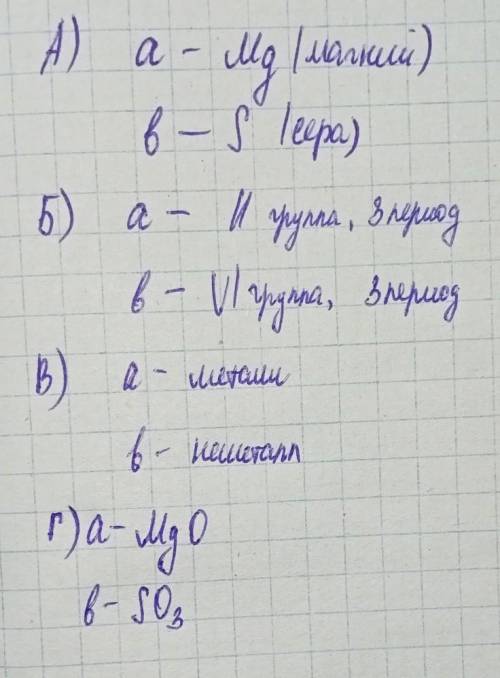 А) а - Mg (магний)
в - S (сера)
Б) а - II группа, 3 период
в - VI группа, 3 период
В) а - металл
в - неметалл
Г) а - MgO
в - SO₃